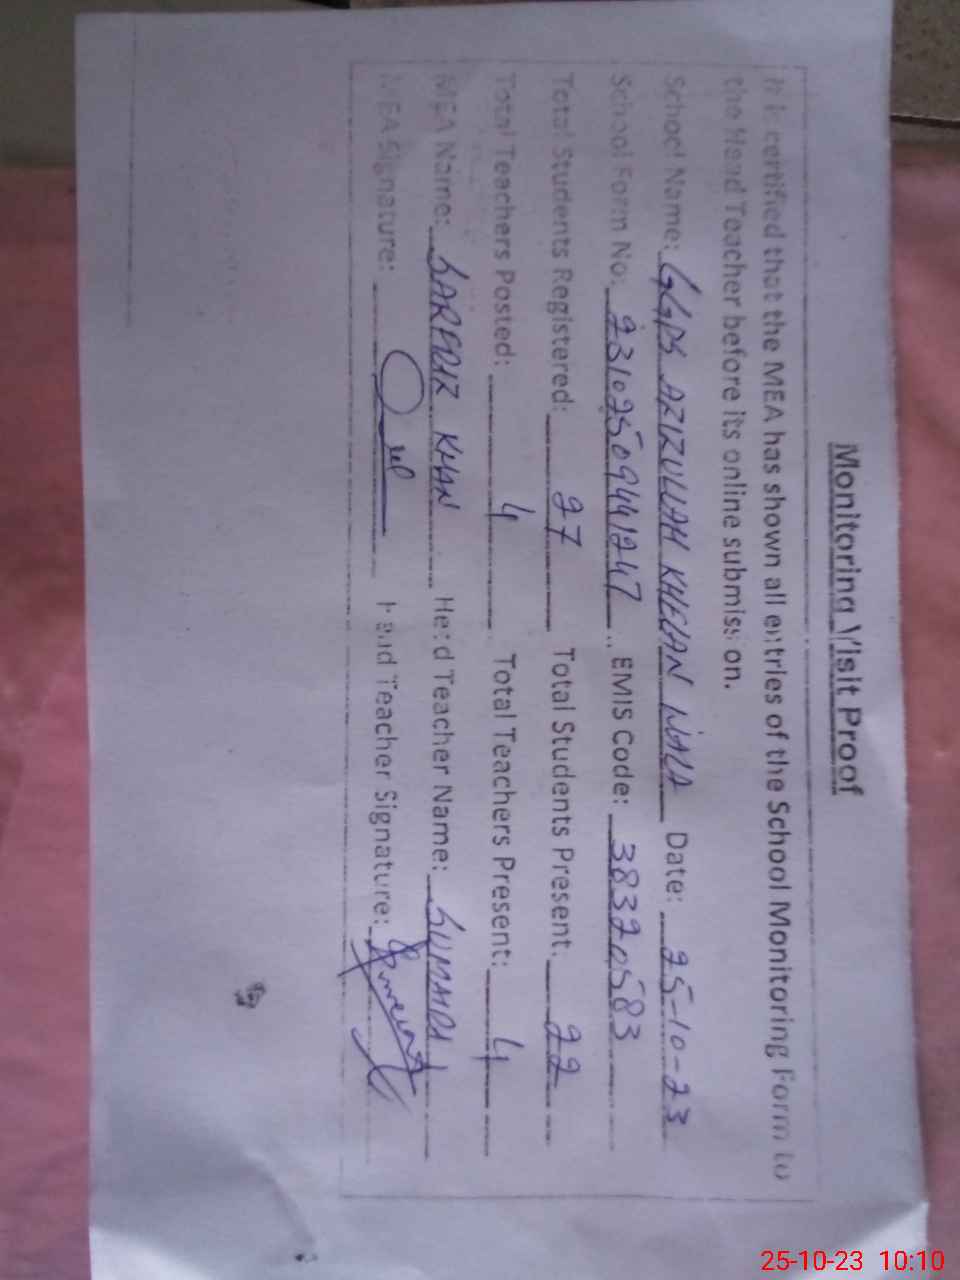 Monitoring Visit Proof
It is certified that the MEA has shown all entries of the School Monitoring Form to
the Head Teacher before its online submission.
School Name: GGPS AZIZULLAH KHELAN WALA Date: 25-10-23
School Form No: 23102509441247 EMIS Code: 38320583
Total Students Registered: 27 Total Students Present: 22
Total Teachers Posted: 4 Total Teachers Present: 4
MEA Name: SARFRAZ KHAN Head Teacher Name: SUMAIRA
MEA Signature: Head Teacher Signature:
25-10-23 10:10